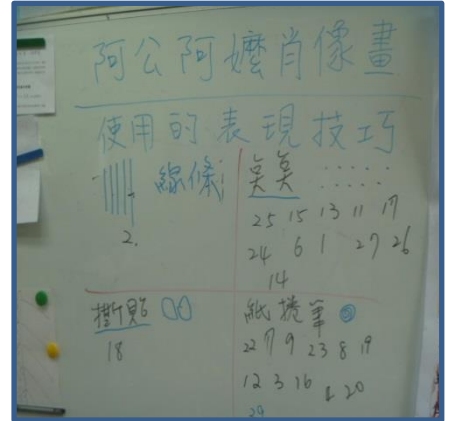 阿公阿嬤肖像畫
使用的表現技巧
線條
2.
點點
25 15 13 11 17
24 6 1 27 26
14
撕貼
18
紙捲筆
22 7 9 23 8 19
12 3 16 4 20
29